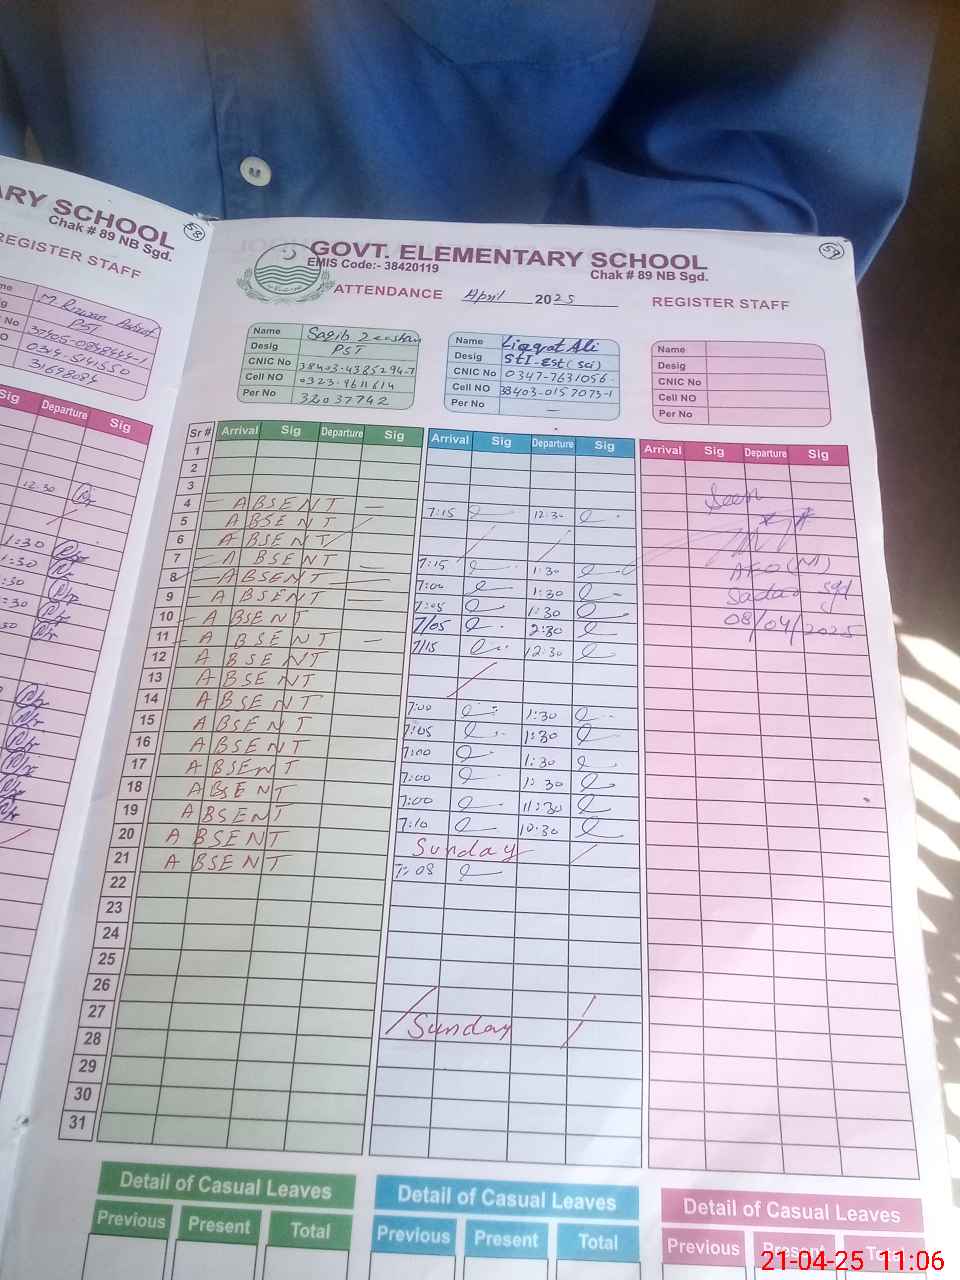 ARY SCHOOL
Chak # 89 NB Sgd.
REGISTER STAFF
58
PST
37405-0848444-1
0349-5141550
31698084
Sig Departure Sig
12:30
1:30
1:30
:30
:30
50
59
GOVT. ELEMENTARY SCHOOL
EMIS Code:- 38420119
Chak # 89 NB Sgd.
ATTENDANCE April 2025 REGISTER STAFF
Name Saqib Zeeshan
Desig PST
CNIC No 38403-4385294-7
Cell NO 0323-9611614
Per No 32037742
Name Liaqat Ali
Desig StI-Est (sci)
CNIC No 0347-7631056
Cell NO 38403-0157073-1
Per No —
Name
Desig
CNIC No
Cell NO
Per No
Sr # Arrival Sig Departure Sig Arrival Sig Departure Sig Arrival Sig Departure Sig
1
2
3
4 ABSENT 7:15 12:30 Seen
5 ABSENT
6 ABSENT
7 ABSENT 7:15 1:30 AEO (M)
8 ABSENT 7:00 1:30 Sadar Sgd
9 ABSENT 7:05 1:30 08/04/2025
10 ABSENT 7/05 2:30
11 ABSENT 7/15 12:30
12 ABSENT
13 ABSENT
14 ABSENT 7:00 1:30
15 ABSENT 7:05 1:30
16 ABSENT 7:00 1:30
17 ABSENT 7:00 1:30
18 ABSENT 7:00 11:30
19 ABSENT 7:10 10:30
20 ABSENT Sunday
21 ABSENT 7:08
22
23
24
25
26
27 Sunday
28
29
30
31
Detail of Casual Leaves Detail of Casual Leaves Detail of Casual Leaves
Previous Present Total Previous Present Total Previous Present Total
21-04-25 11:06